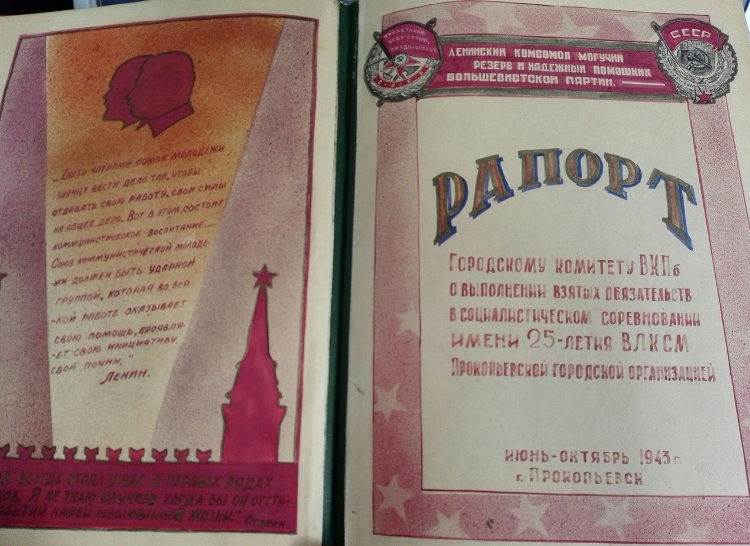 „Быть членами союза молодежи
значит вести дело так, чтобы
отдавать свою работу, свои силы
на общее дело. Вот в этом состоит
коммунистическое воспитание...
Союз коммунистической молоде-
жи должен быть ударной
группой, которая во вся-
-кой работе оказывает
свою помощь, проявля-
-ет свою инициативу,
свой почин."
Ленин.
всегда стоял у нас в первых рядах
ков. Я не знаю случаев, когда бы он отста-
бытий нашей революционной жизни." Сталин.
СССР
Ленинский комсомол могучий
резерв и надежный помошник
большевистской партии.
РАПОРТ
Городскому комитету ВКПб
о выполнении взятых обязательств
в социалистическом соревновании
имени 25-летия ВЛКСМ
Прокопьевской городской организацией
июнь-октябрь 1943 г.
г. Прокопьевск